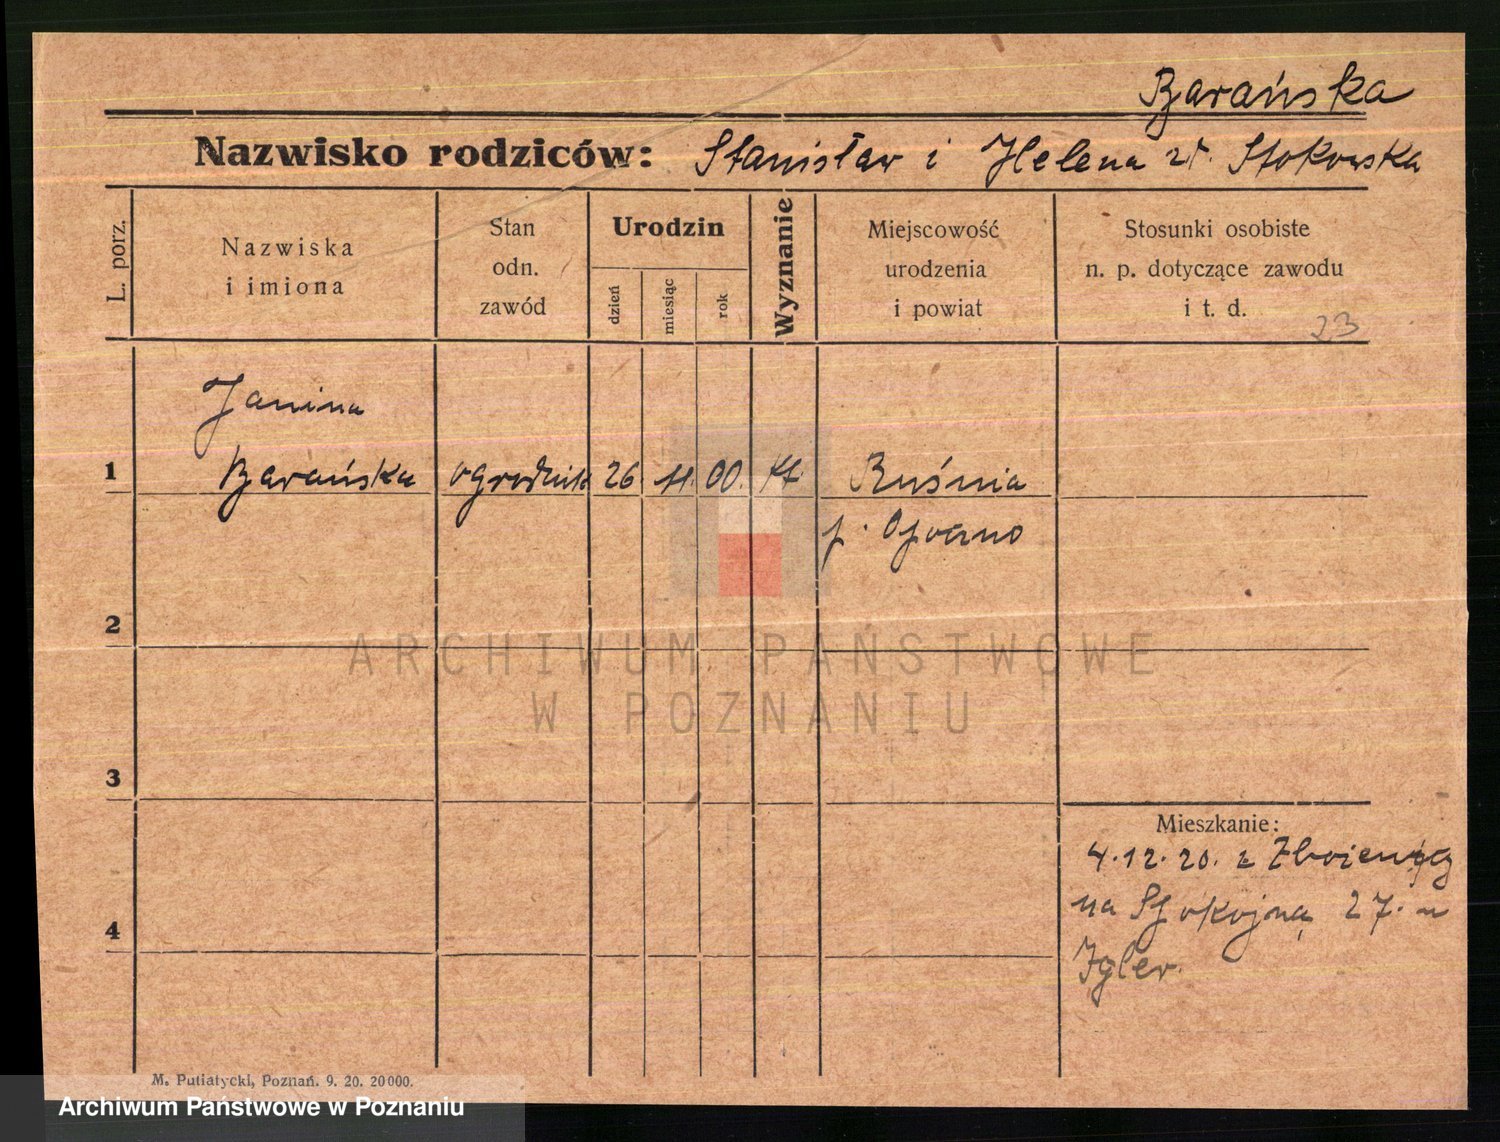 Barańska
Nazwisko rodziców: Stanisław i Helena zd. Stokowska
L. porz.
Nazwiska
i imiona
Stan
odn.
zawód
Urodzin
dzień
miesiąc
rok
Wyznanie
Miejscowość
urodzenia
i powiat
Stosunki osobiste
n. p. dotyczące zawodu
i t. d.
23
Janina
1 Barańska ogrodnik 26 11. 00. kt Ruśnia
p.
2
ARCHIWUM PAŃSTWOWE
W POZNANIU
3
Mieszkanie:
4.12.20. z
na Spokojną 27. u
4
Igler.
M. Putiatycki, Poznań. 9. 20. 20000.
Archiwum Państwowe w Poznaniu